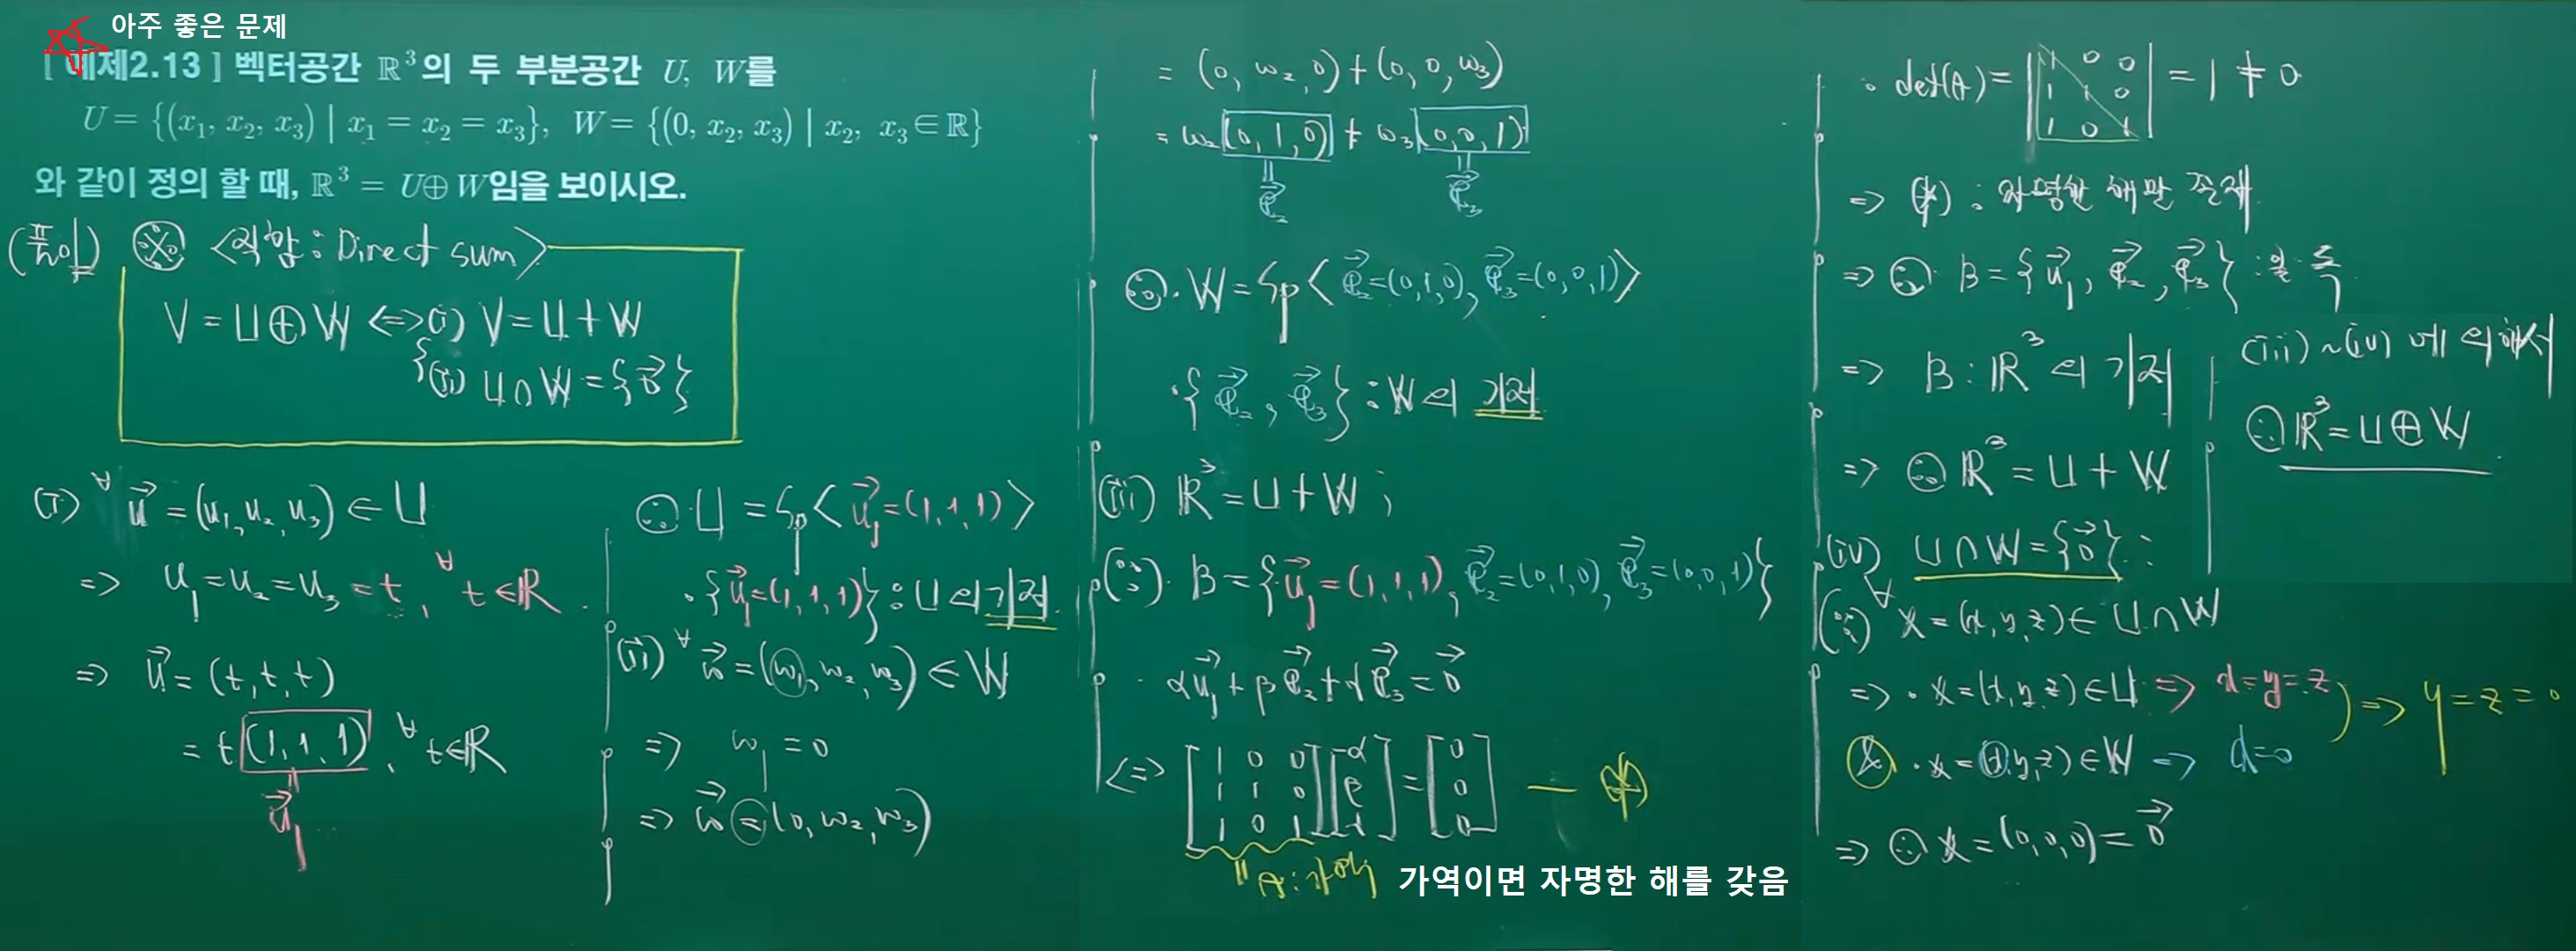 아주 좋은 문제
[ 예제2.13 ] 벡터공간 ℝ³의 두 부분공간 U, W를
U = {(x₁, x₂, x₃) | x₁ = x₂ = x₃}, W = {(0, x₂, x₃) | x₂, x₃ ∈ ℝ}
와 같이 정의 할 때, ℝ³ = U⊕W임을 보이시오.
(풀이) ※ <직합 : Direct sum>
V = U ⊕ W <=> (i) V = U + W
(ii) U ∩ W = {0⃗}
(i) ∀ u⃗ = (u₁, u₂, u₃) ∈ U
=> u₁ = u₂ = u₃ = t, ∀ t ∈ ℝ.
=> u⃗ = (t, t, t)
= t(1, 1, 1), ∀ t ∈ ℝ
u⃗₁
∴ U = Sp< u⃗₁ = (1, 1, 1) >
· {u⃗₁ = (1, 1, 1)} : U의 기저
(ii) ∀ w⃗ = (w₁, w₂, w₃) ∈ W
=> w₁ = 0
=> w⃗ = (0, w₂, w₃)
= (0, w₂, 0) + (0, 0, w₃)
= w₂(0, 1, 0) + w₃(0, 0, 1)
e⃗₂ e⃗₃
∴ · W = Sp< e⃗₂ = (0, 1, 0), e⃗₃ = (0, 0, 1) >
· { e⃗₂, e⃗₃ } : W의 기저
(iii) ℝ³ = U + W ;
(∵) · B = {u⃗₁ = (1, 1, 1), e⃗₂ = (0, 1, 0), e⃗₃ = (0, 0, 1)}
· αu⃗₁ + βe⃗₂ + γe⃗₃ = 0⃗
<=> [1 0 0 [α [0
1 1 0 β = 0 — (*)
1 0 1] γ] 0]
" A : 가역 가역이면 자명한 해를 갖음
· det(A) = |1 0 0
1 1 0 = 1 ≠ 0
1 0 1|
=> (*) : 자명한 해만 존재
=> ∴ B = {u⃗₁, e⃗₂, e⃗₃} : 일·독
=> B : ℝ³의 기저
=> ∴ ℝ³ = U + W
(iv) U ∩ W = {0⃗} :
(∵) ∀ x = (x, y, z) ∈ U ∩ W
=> · x = (x, y, z) ∈ U => x = y = z
& · x = (x, y, z) ∈ W => x = 0
=> y = z = 0
=> ∴ x = (0, 0, 0) = 0⃗
(iii) ~ (iv) 에 의해서
∴ ℝ³ = U ⊕ W